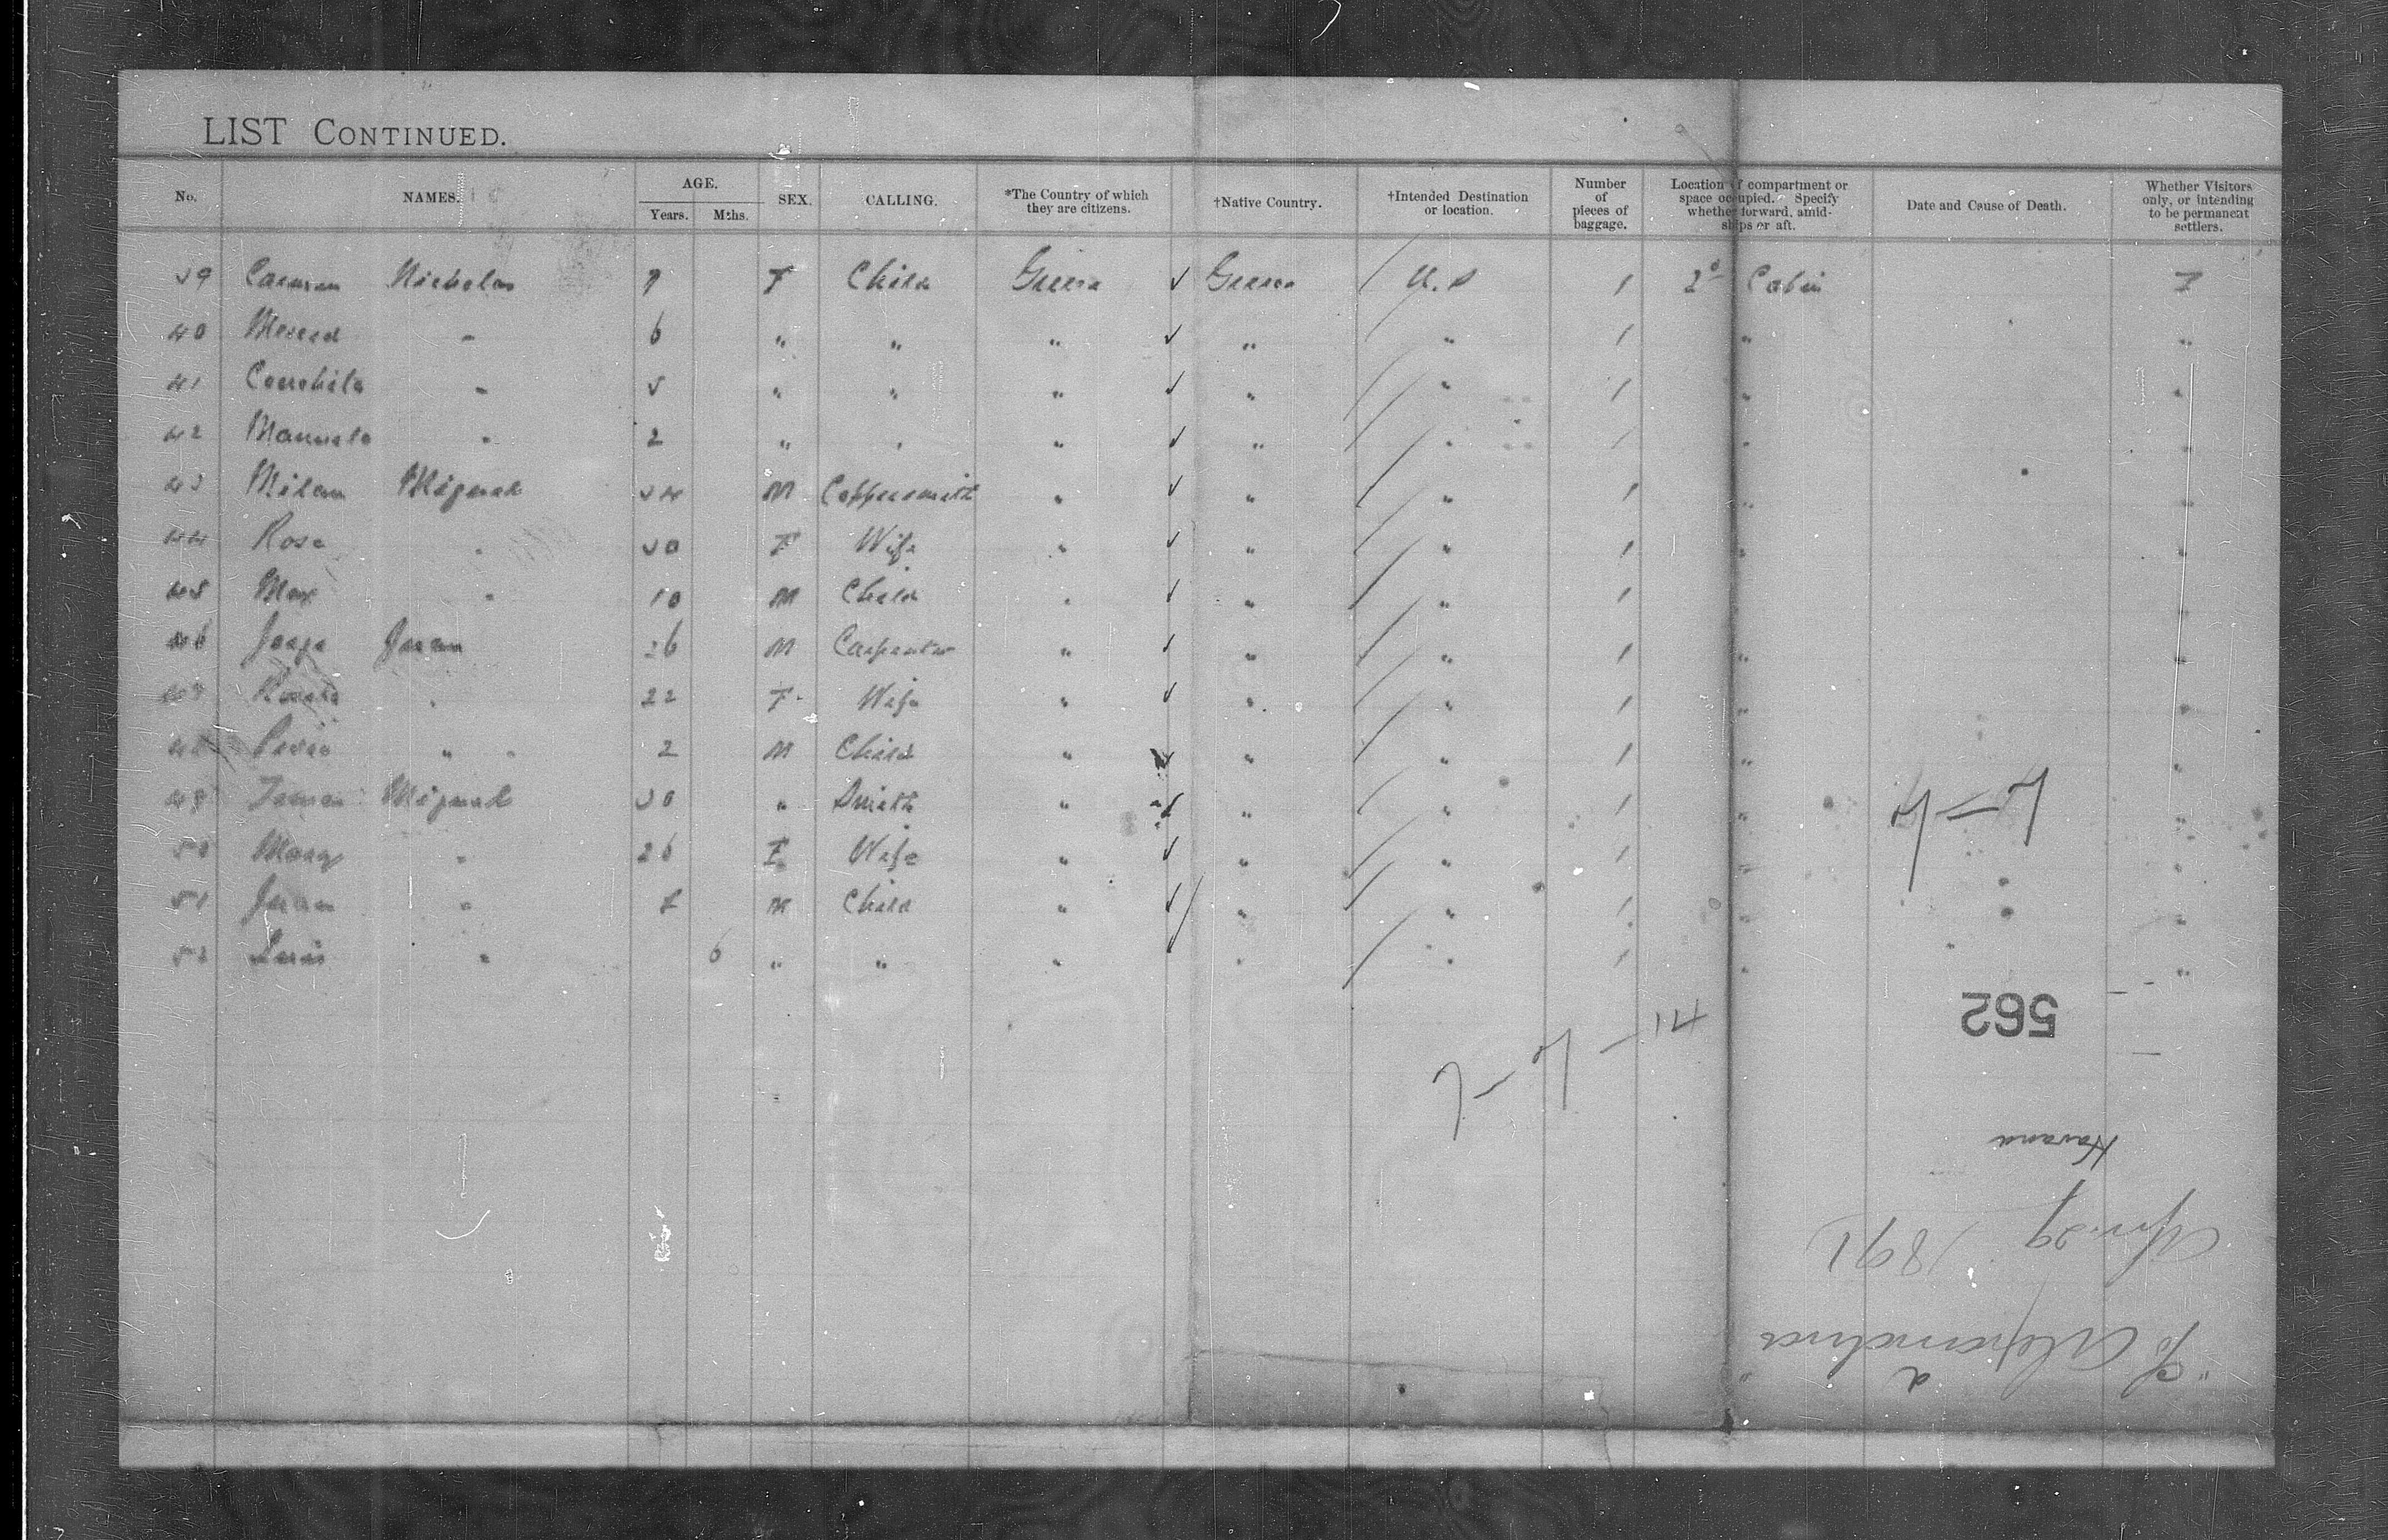 LIST CONTINUED.
No. NAMES. AGE. Years. Mths. SEX. CALLING. *The Country of which they are citizens. †Native Country. †Intended Destination or location. Number of pieces of baggage. Location of compartment or space occupied. Specify whether forward, amid-ships or aft. Date and Cause of Death. Whether Visitors only, or intending to be permanent settlers.
39 Carmen Nicholas 7 F Child Greece ✓ Greece / U.S 1 2d Cabin
40 Merced " 6 " " " ✓ " / " 1 " "
41 Conchita " 5 " " " ✓ " / " 1 " "
42 Manuela " 2 " " " ✓ " / " 1 " "
43 Milan Miguel 34 M Coppersmith " ✓ " / " 1 " "
44 Rosa " 30 F Wife " ✓ " / " 1 " "
45 Max " 10 M Child " ✓ " / " 1 " "
46 Jorge Juan 26 M Carpenter " ✓ " / " 1 " "
47 " 22 F Wife " ✓ " / " 1 " "
48 " 2 M Child " ✓ " / " 1 " "
49 Miguel 30 " Smith " ✓ " / " 1 " "
50 Mary " 26 F Wife " ✓ " / " 1 " "
51 Juan " M Child " ✓ " / " 1 " "
52 Luis " 6 " " " ✓ " / " 1 " "
562
Havana
Apr. 29 1891
"So Alexandria"